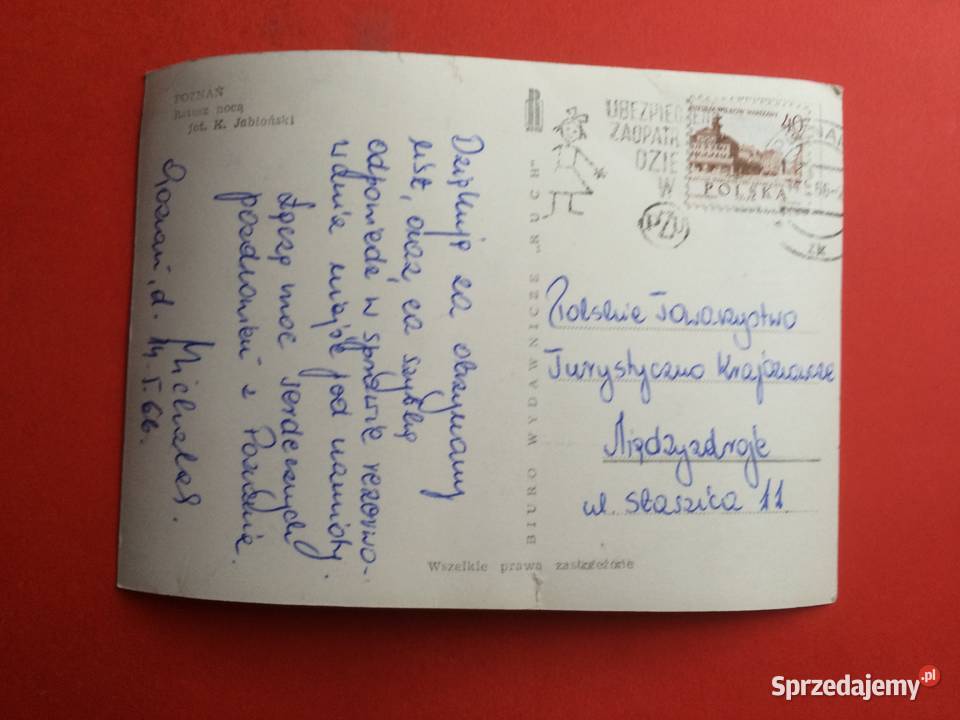 POZNAŃ
Ratusz nocą
fot. K. Jabłoński
Dziękuję za otrzymany
list, oraz, za szybką
odpowiedź w sprawie rezerwo-
wania miejsc pod namioty.
Łączę moc serdecznych
pozdrowień z Poznania.
Michalak.
Poznań, d. 14.I.66.
BIURO WYDAWNICZE "RUCH"
Wszelkie prawa zastrzeżone
UBEZPIECZENI
ZAOPATR
DZIE
W
PZU
40
POLSKA
66
Polskie Towarzystwo
Turystyczno Krajoznawcze
Międzyzdroje
ul. Staszica 11.
Sprzedajemy.pl